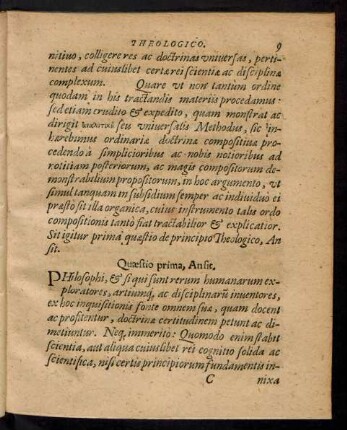 THEOLOGICO. 9
nitiuo, colligere res ac doctrinas vniuersas, perti-
nentes ad cuiuslibet certæ rei scientiæ ac disciplinæ
complexum. Quare vt non tantùm ordine
quodam in his tractandis materiis procedamus
sed etiam erudito & expedito, quam monstrat ac
dirigit seu vniuersalis Methodus, sic in-
hærebimus ordinariæ doctrinæ compositiuæ pro-
cedendo à simplicioribus ac nobis notioribus ad
notitiam posteriorum, ac magis compositorum de-
monstrabilium propositorum, in hoc argumento, vt
simul tanquam in subsidium semper ac indiuiduo ei
præsto sit illa organica, cuius instrumento talis ordo
compositionis tanto fiat tractabilior & explicatior.
Sit igitur prima quæstio de principio Theologico, An
sit.
Quæstio prima, An sit.
PHilosophi, & si qui sunt rerum humanarum ex-
ploratores, artiumq; ac disciplinarũ inuentores,
ex hoc inquisitionis fonte omnem suæ, quam docent
ac profitentur, doctrinæ certitudinem petunt ac di-
metiuntur. Neq; immerito: Quomodo enim stabet
scientia, aut aliqua cuiuslibet rei cognitio solida ac
scientifica, nisi certis principiorum fundamentis in-
C nixa